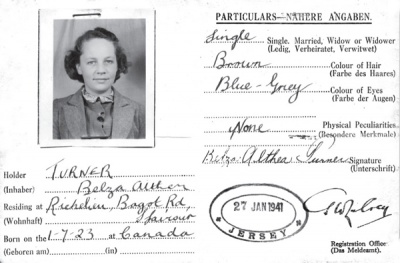 PARTICULARS—NÄHERE ANGABEN.
Single Single, Married, Widow or Widower
(Ledig, Verheiratet, Verwitwet)
Brown Colour of Hair
(Farbe des Haares)
Blue-Grey Colour of Eyes
(Farbe der Augen)
None Physical Peculiarities
(Besondere Merkmale)
Belza Althea Turner Signature
(Unterschrift)
Holder TURNER
(Inhaber) Belza Althea
Residing at Richelieu, Bagot Rd,
(Wohnhaft) St Saviour
Born on the 1-7-23 at Canada
(Geboren am) (in)
27 JAN 1941
JERSEY
Registration Office
(Das Meldeamt).